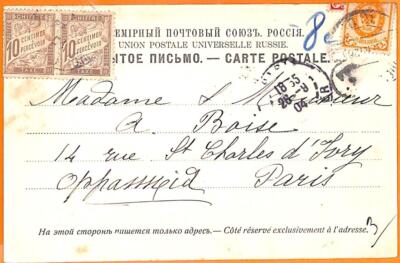 8
CHIFFRE
CHIFFRE
10 CENTIMES À PERCEVOIR
10 CENTIMES À PERCEVOIR
TAXE
TAXE
ВСЕМІРНЫЙ ПОЧТОВЫЙ СОЮЗЪ. РОССІЯ.
UNION POSTALE UNIVERSELLE RUSSIE.
ЫТОЕ ПИСЬМО. — CARTE POSTALE.
18 35
04
Madame & Monsieur
A. Boise
14 rue St Charles d'Ivry
Paris
На этой сторонѣ пишется только адресъ. — Côté réservé exclusivement à l'adresse.
3